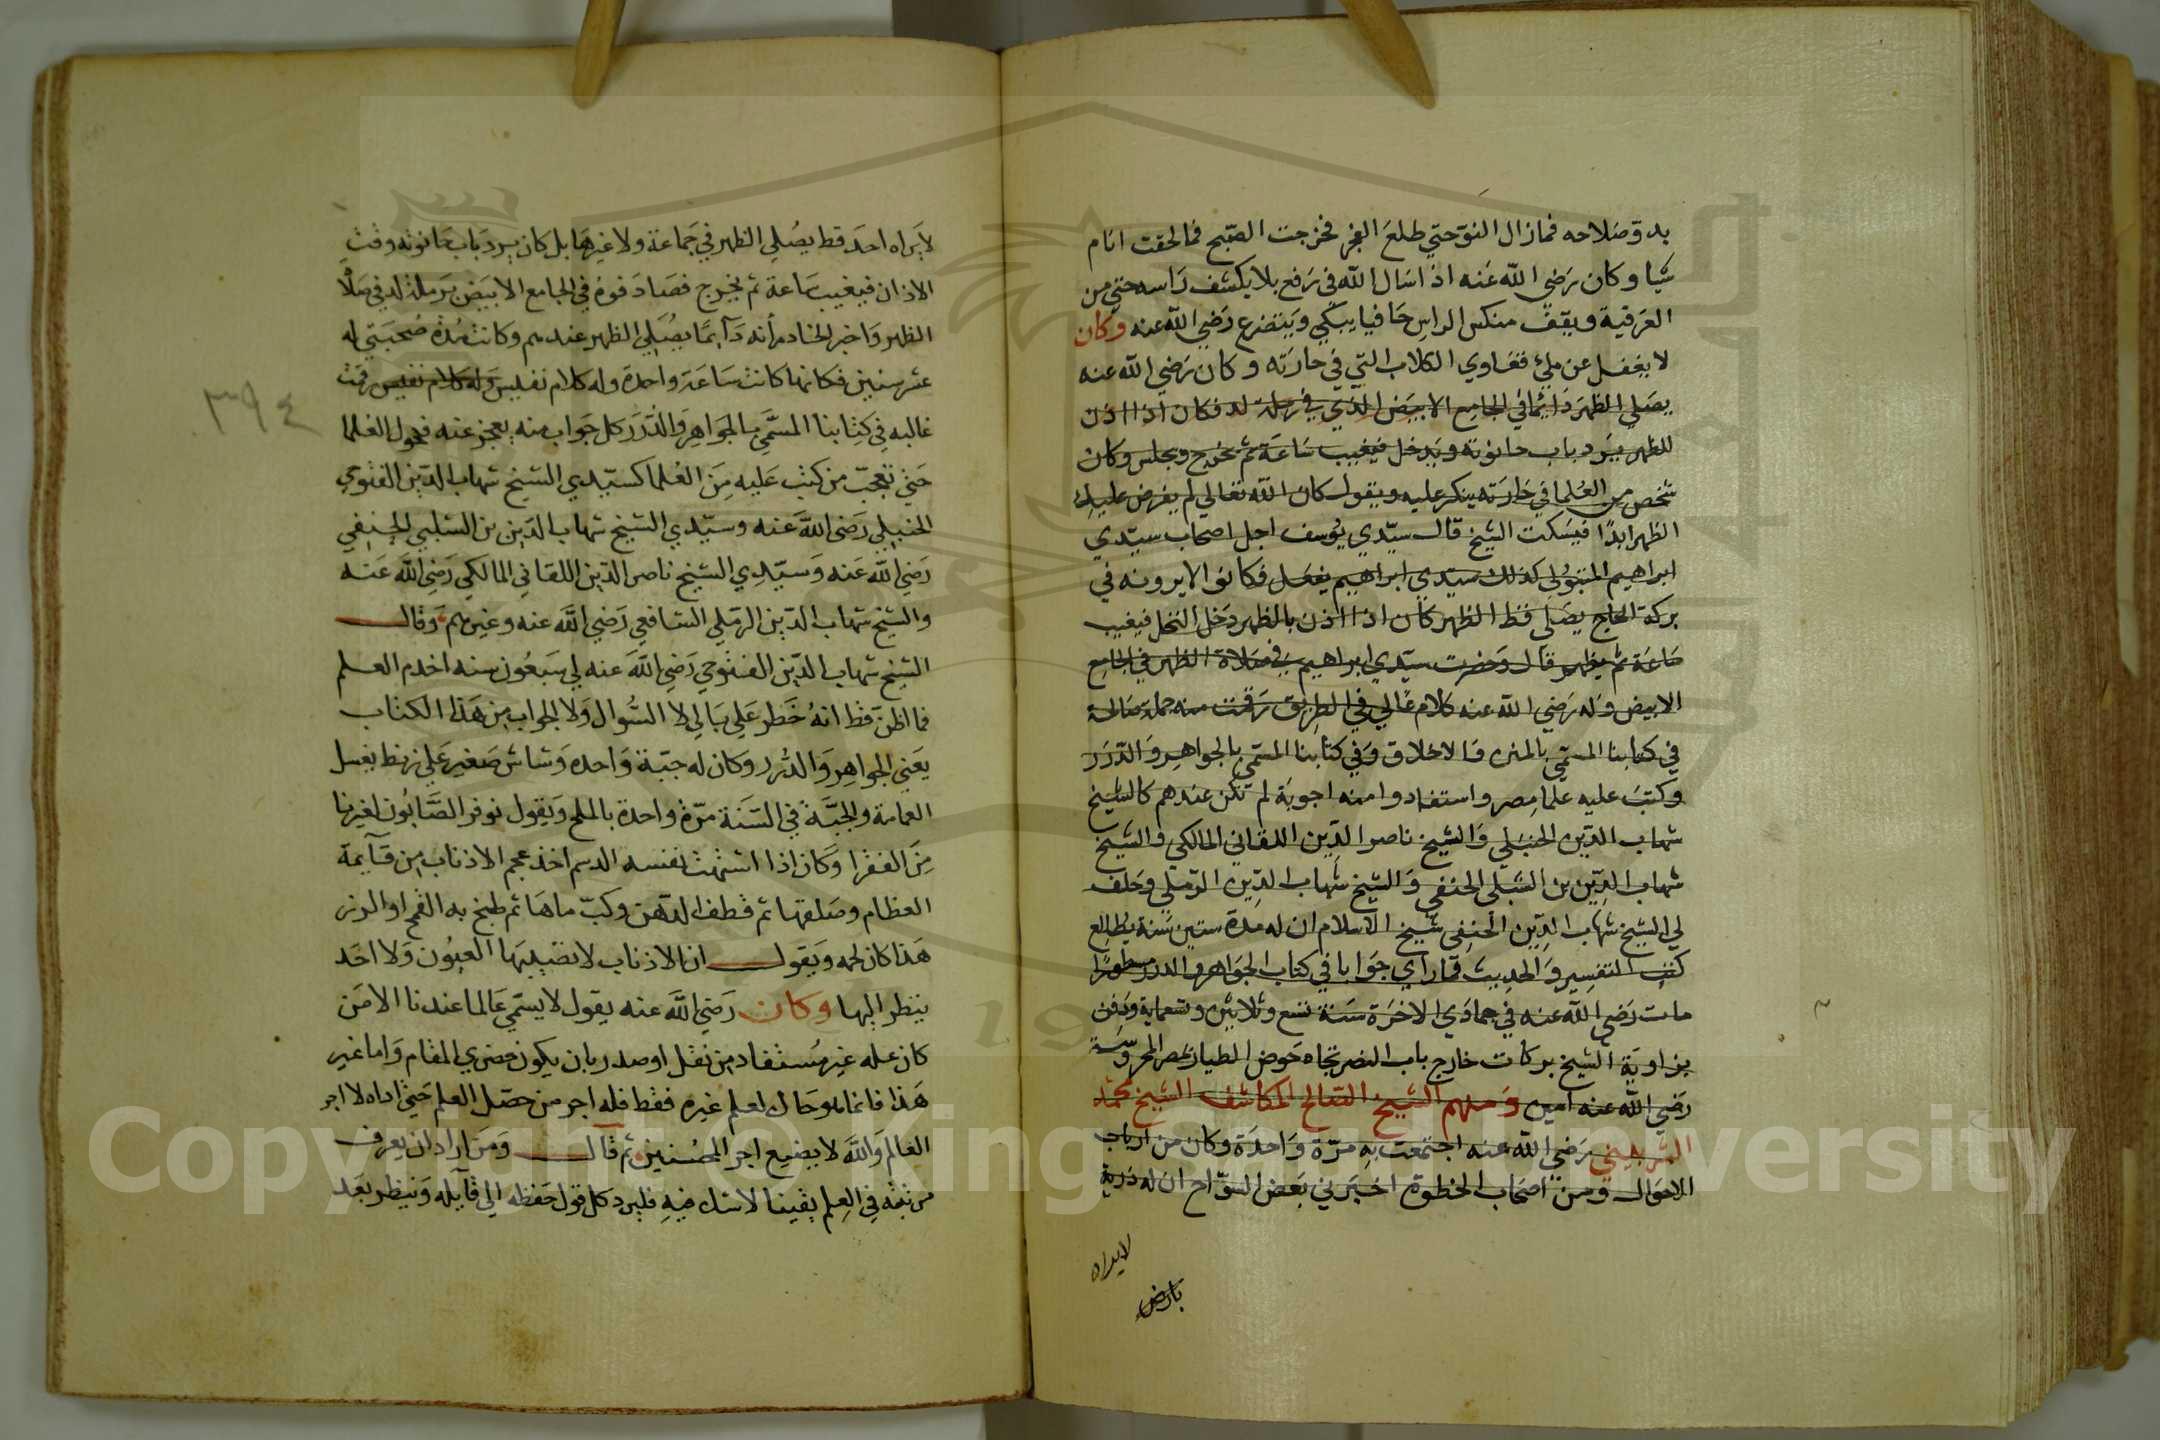 بدوّ صلاحه فمازال النوّ حتي طلع الفجر فخرجت الصبح فما لحقت انام
شيا وكان رَضي الله عَنه اذا سَال الله في رَفع بلا يكشف رَاسه حتي من
العَرقية ويقف منكس الراس حَافيا يبكي ويَتضرع رَضي الله عنه وكان
لا يغفل عن ملئ فعاوي الكلاب التي في حارَته وكان رَضي الله عنه
يصَلي الظهر دَائما في الجامع الابيض الذي في رملة لد فكان اذا اذن
للظهر يَرد باب حانوته ويَدخل فيغيب سَاعَة ثم يخرج ويجلس وكان
شخص من العُلما في حَارَته ينكر عليه ويقول كان الله تعالي لم يفرض عليك
الظهر ابدًا فيَسكت الشيخ قال سيّدي يُوسف اجل اصحاب سيّدي
ابراهيم المتبولي كذلك سيّدي ابراهيم يفعَل فكانوا لا يرونه في
بركة الحاج يصَلي قط الظهر كان اذا اذن بالظهر دَخل النخل فيغيب
سَاعَة ثم يظهر قال وَحضرت سيّدي ابراهيم في صلاة الظهر في الجامع
الابيض وله رَضي الله عنه كلام غالي في الطريق رَقمت منه جملة صَالحة
في كتابنا المسمّي بالمنن والاخلاق وَفي كتابنا المسمّي بالجواهر وَالدّرَر
وكتبَ عليه علما مصر واستفادوا منه اجوبَة لم تكن عندهم كالشيخ
شهاب الدّين الحنبلي وَالشيخ ناصر الدّين اللقاني المالكي والشيخ
شهاب الدّين بن الشّبلي الحنفي وَالشيخ شهاب الدّين الرّملي وحَلف
لي الشيخ شهاب الدّين الحنفي شيخ الاسلام ان له مدة ستين سَنة يُطالع
كتب التفسير وَالحديث فما راي جوَابا في كتاب الجوَاهر والدرر مسطورًا
مات رَضي الله عنه في جمادَي الاخرَة سَنة تسع وثلاثين وتسعماية وَدفن
بزاويَة الشيخ بركات خارج باب النصر تجاه حَوض الطيار بمصر المحروسَة
رَضي الله عنه امين وَمنهم الشيخ الصالح المكاشف الشيخ محمّد
الشربيني رَضي الله عنه اجتمعت به مرّة وَاحدَة وكان من ارباب
الاحوَال ومن اصحَاب الخطوة اخبَرني بَعض السوّاح ان له ذرية
لا يراه
بارض
لا يَراه احَد قط يصُلي الظهر في جَماعَة ولا غيرهَا بل كان يرد بَاب حَانوته وقت
الاذان فيغيب سَاعة ثم يخرج فصَادَفوه في الجامع الابيَض برَملة لد في صَلاة
الظهر وَاخبر الخادم أنه دَآيمًا يصُلي الظهر عندهم وكانت مُدة صُحبَتي له
عشر سنين فكانها كانت سَاعَة واحدة وله كلام نفيس وله كلام نفيس رقمت
غالبه في كتابنا المسَمّي بالجوَاهر وَالدّرَر كل جَواب منه يعجز عنه فحول العُلما
حتي تعجّب من كتب عَليه مِنَ العُلما كسَيّدي الشيخ شهاب الدّين الفتوحي
الحنبلي رَضي اللهُ عَنه وسيّدي الشيخ شهاب الدّين بن الشلبي الحنفي
رَضي الله عَنه وَسيّدي الشيخ ناصر الدّين اللقاني المالكي رَضي الله عَنه
والشيخ شهاب الدّين الرّملي الشافعي رَضي الله عنه وغيرهم وَقال
الشيخ شهاب الدّين الفتوحي رَضي الله عنه لي سَبعُون سنه اخدم العلم
فما اظن قط انهُ خَطر عَلي بَالي لا السُّوال وَلا الجواب من هَذا الكتاب
يَعني الجواهِر وَالدُّرر وكان له جبّة وَاحده وَشاش صَغير عَلي زنط يغسل
العمامة والجُبَّة في السّنَة مرّة واحدة بالملح وَيقول نوفر الصَّابُون لغيرنا
مِنَ الفقرا وَكان اذا اشتهت نفسه الدسم اخذ عجم الاذناب من قآيمة
العظام وصَلقها ثم قطف الدّهن وكبّ ماهَا ثم طبخ به القمح او الرز
هَذا كان لحمه وَيَقول ان الاذناب لا تصيبها العيُون وَلا احَد
ينظر اليها وكان رَضي الله عنه يقول لا يسَمّي عَالما عندنا الا مَن
كان علمه غير مُستفاد من نقل او صدر بان يكون خضري المقام وَاما غير
هَذا فانما هو حَاك لعلم غيره فقط فله اجر من حمّل العلم حَتي اداه لا اجر
العالم وَالله لا يضيع اجر المحسنين ثم قال وَمَن اراد ان يعرف
مرتبته في العِلم يقينا لا شك فيه فليرد كل قول حَفظه الي قآيله وَينظر بعَد
٣٩٤